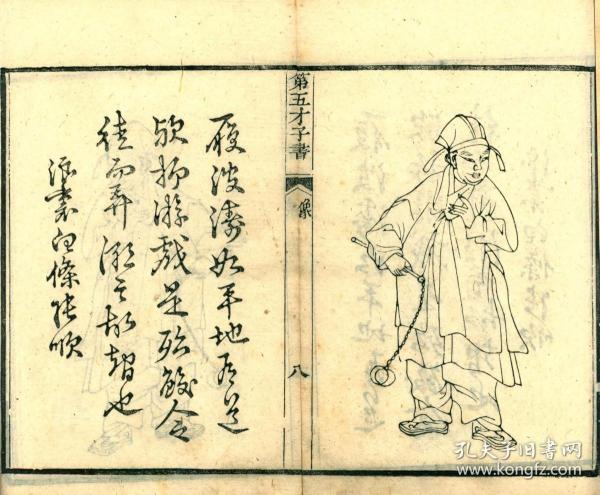 履波濤如平地有道
歟抑游戲是殆
徒而弄潮之故智也
浪裏白條張順
第五才子書
像
八
孔夫子旧书网
www.kongfz.com